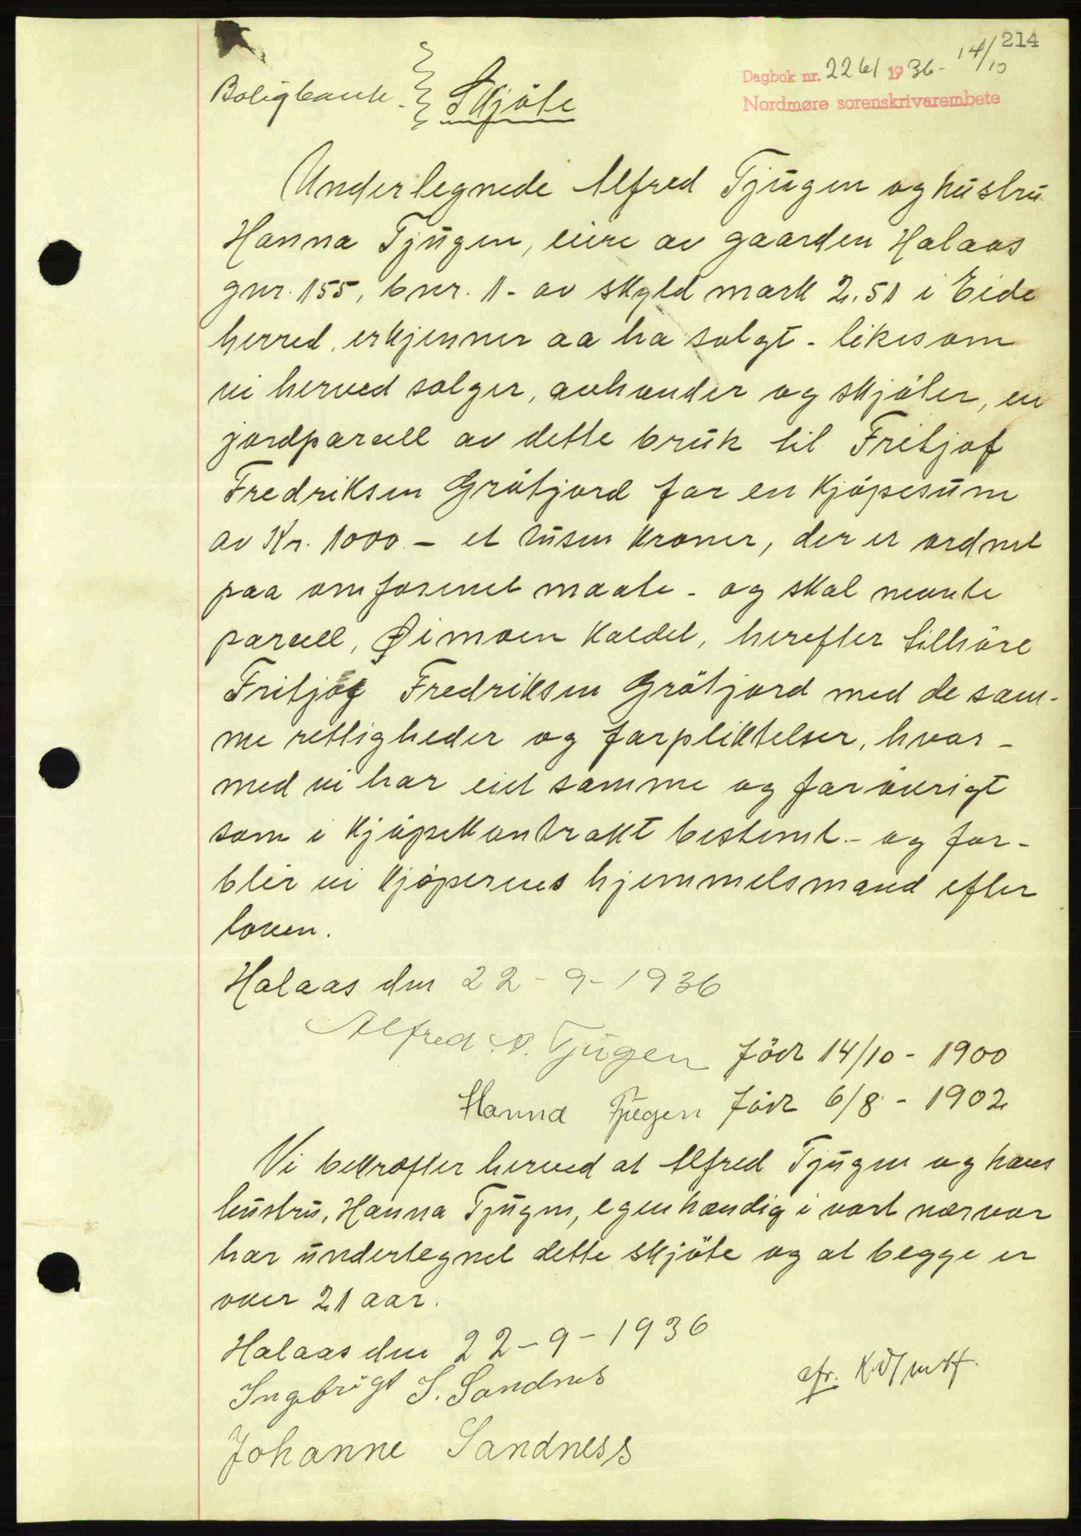 214
Dagbok nr. 2261 1936 - 14/10
Nordmøre sorenskrivarembete
Boligbank.
Skjöte
Undertegnede Alfred Tjugen og hustru
Hanna Tjugen, eiere av gaarden Halaas
gnr. 155, bnr. 1 - av skyld mark 2.51 i Eide
herred, erkjenner aa ha solgt - likesom
vi herved solger, avhænder og skjöter, en
jordparcell av dette bruk til Fritjof
Fredriksen Grötjord for en kjöpesum
av Kr. 1000 - et tusen kroner, der er ordnet
paa omforenet maate - og skal nevnte
parcell, Öimoen kaldet, herefter tilhöre
Fritjof Fredriksen Grötjord med de sam-
me rettigheder og forpliktelser, hvor-
med vi har eiet samme og forövrigt
som i kjöpekontrakt bestemt - og for-
blir vi kjöperens hjemmelsmænd efter
loven.
Halaas den 22-9-1936
Alfred Tjugen född 14/10 - 1900
Hanna Tjugen född 6/8 - 1902
Vi bekræfter herved at Alfred Tjugen og hans
hustru, Hanna Tjugen, egenhændig i vort nærvær
har undertegnet dette skjöte og at begge er
over 21 aar.
Halaas den 22-9-1936
Ingebrigt S. Sandnes
Johanne Sandness